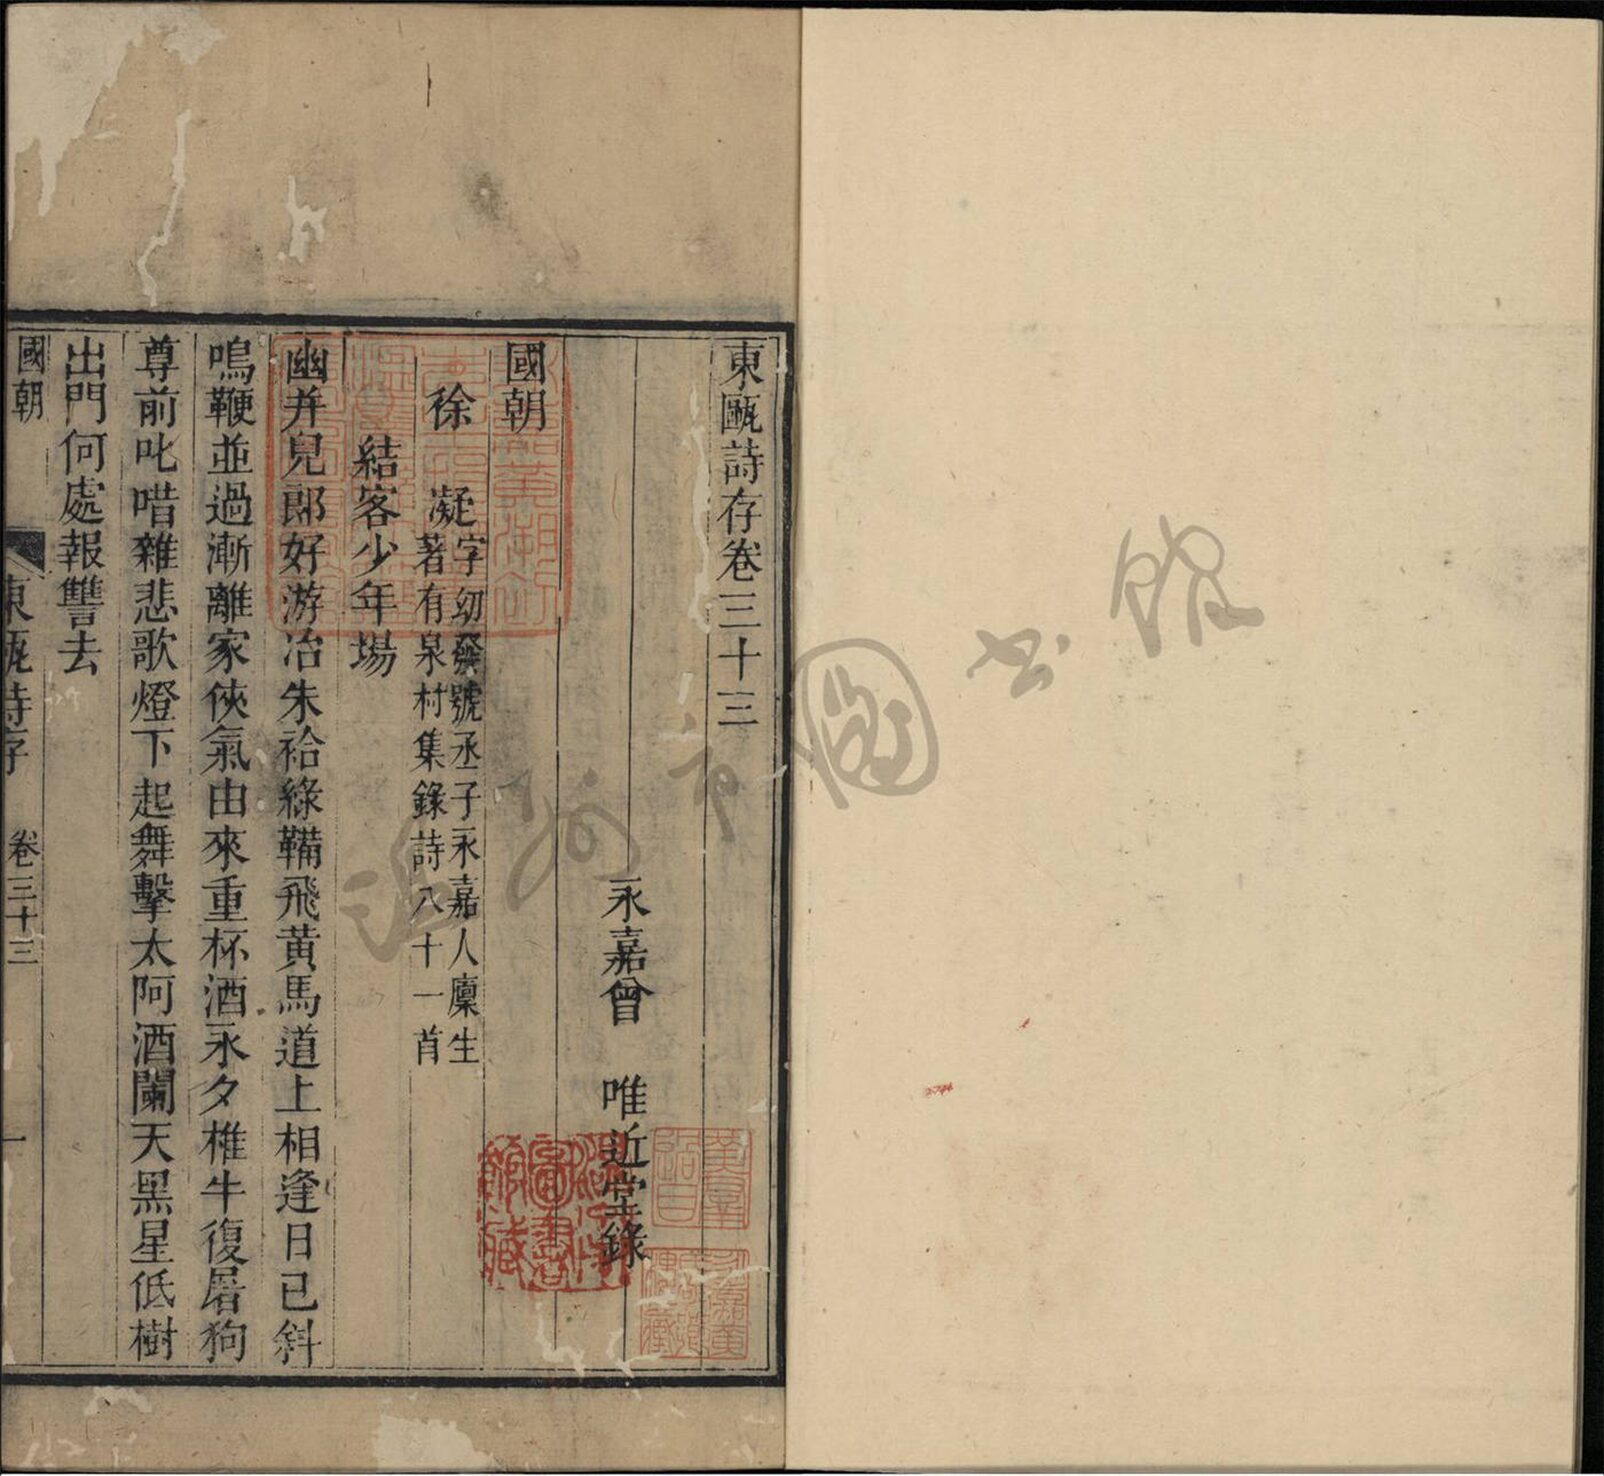 東甌詩存卷三十三
永嘉曾 唯近堂錄
國朝
徐 凝字幼發號丞子永嘉人廩生
著有泉村集錄詩八十一首
結客少年場
幽并兒郎好游冶朱袷綠鞲飛黃馬道上相逢日已斜
鳴鞭並過漸離家俠氣由來重杯酒永夕椎牛復屠狗
尊前叱唶雜悲歌燈下起舞擊太阿酒闌天黑星低樹
出門何處報讐去
國朝
東甌詩存 卷三十三 一
溫州市圖書館
溫州市圖書館藏